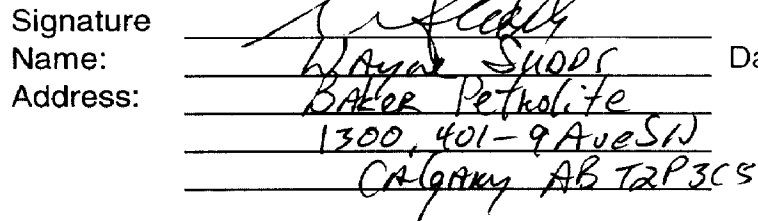 Signature
Name: Wayne Da
Address: BAKER Petrolite
1300, 401-9 Ave SW
CAlgARy AB T2P3C5